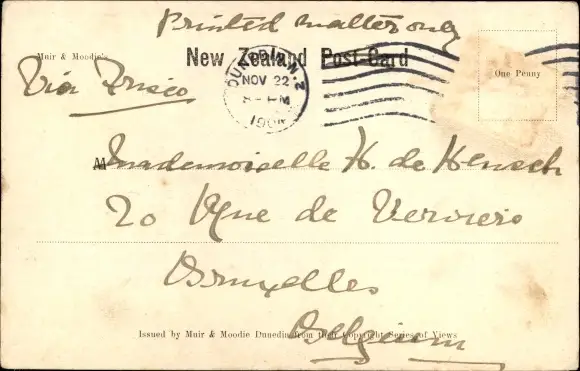 Printed matter only
Muir & Moodie's
New Zealand Post Card
Via Frisco
DUNEDIN. N.Z
NOV 22
One Penny
Mademoiselle H. de
20 Rue de Verviers
Bruxelles
Belgium
Issued by Muir & Moodie Dunedin from their Copyright Series of Views